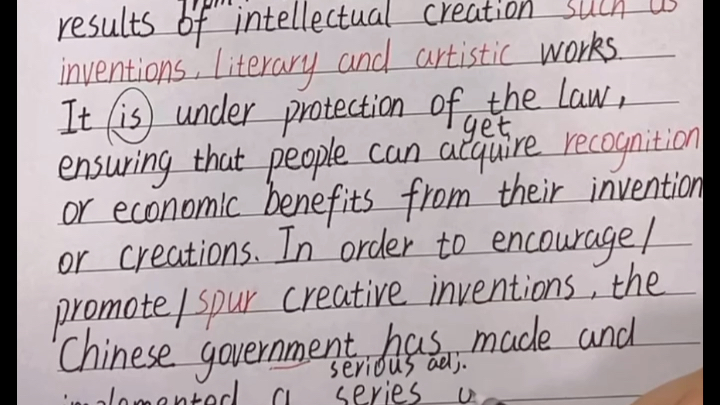 results of intellectual creation such as
inventions, literary and artistic works.
It is under protection of the law,
get
ensuring that people can acquire recognition
or economic benefits from their invention
or creations. In order to encourage/
promote/spur creative inventions, the
Chinese government has made and
serious adj.
implemented a series